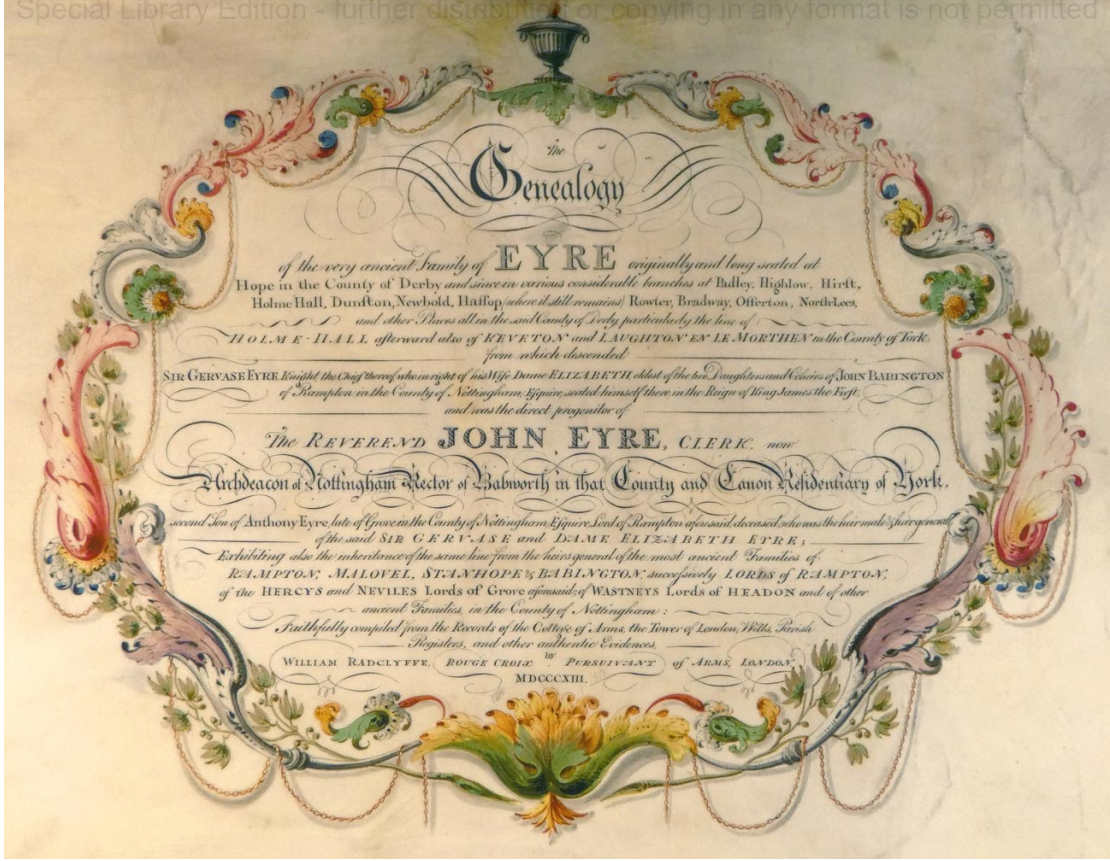 Special Library Edition - further distribution or copying in any format is not permitted
The
Genealogy
of the very ancient Family of EYRE originally and long seated at
Hope in the County of Derby and since in various considerable branches at Padley, Highlow, Hirst,
Holme Hall, Dunston, Newbold, Hassop (where it still remains) Rowter, Bradway, Offerton, North-Lees,
and other Places all in the said County of Derby particularly the line of
HOLME-HALL afterward also of KEVETON and LAUGHTON EN LE MORTHEN in the County of York;
from which descended
SIR GERVASE EYRE Knight, the Chief thereof, who in right of his Wife Dame ELIZABETH eldest of the two Daughters and Coheirs of JOHN BABINGTON
of Rampton in the County of Nottingham, Esquire, seated himself there in the Reign of King James the First,
and was the direct progenitor of
The REVEREND JOHN EYRE, CLERK, now
Archdeacon of Nottingham Rector of Babworth in that County and Canon Residentiary of York.
second Son of Anthony Eyre, late of Grove in the County of Nottingham Esquire, Lord of Rampton aforesaid, deceased, who was the heir male & heir general
of the said SIR GERVASE and DAME ELIZABETH EYRE;
Exhibiting also the inheritance of the same line from the heirs general of the most ancient Families of
RAMPTON, MALOVEL, STANHOPE & BABINGTON, successively LORDS of RAMPTON,
of the HERCYS and NEVILES Lords of Grove aforesaid; of WASTNEYS Lords of HEADON and of other
ancient Families, in the County of Nottingham:
Faithfully compiled from the Records of the College of Arms, the Tower of London, Wills, Parish
Registers, and other authentic Evidences,
by
WILLIAM RADCLYFFE, ROUGE CROIX PURSUIVANT of ARMS, LONDON,
MDCCCXIII.